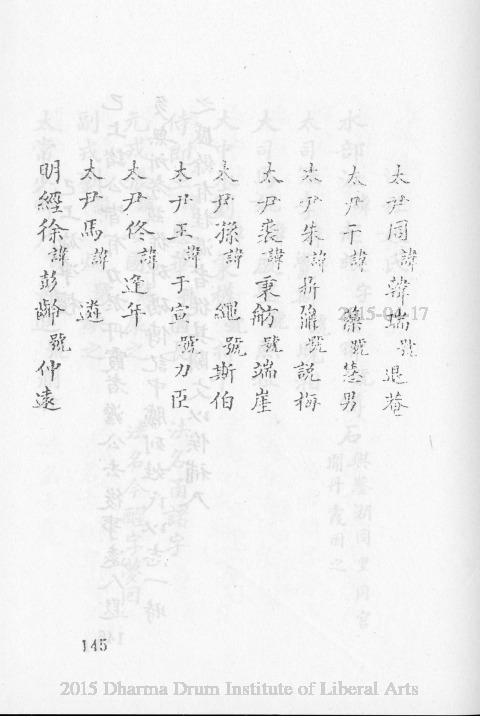 太尹周諱韓瑞號退菴
太尹于諱藻號慧男
太尹朱諱號說梅
太尹裘諱秉舫號端崖
太尹孫諱繩號斯伯
太尹王諱于宣號力臣
太尹佟諱逢年
太尹馬諱遴
明經徐諱彭齡號仲遠
145
2015-04-17
2015 Dharma Drum Institute of Liberal Arts